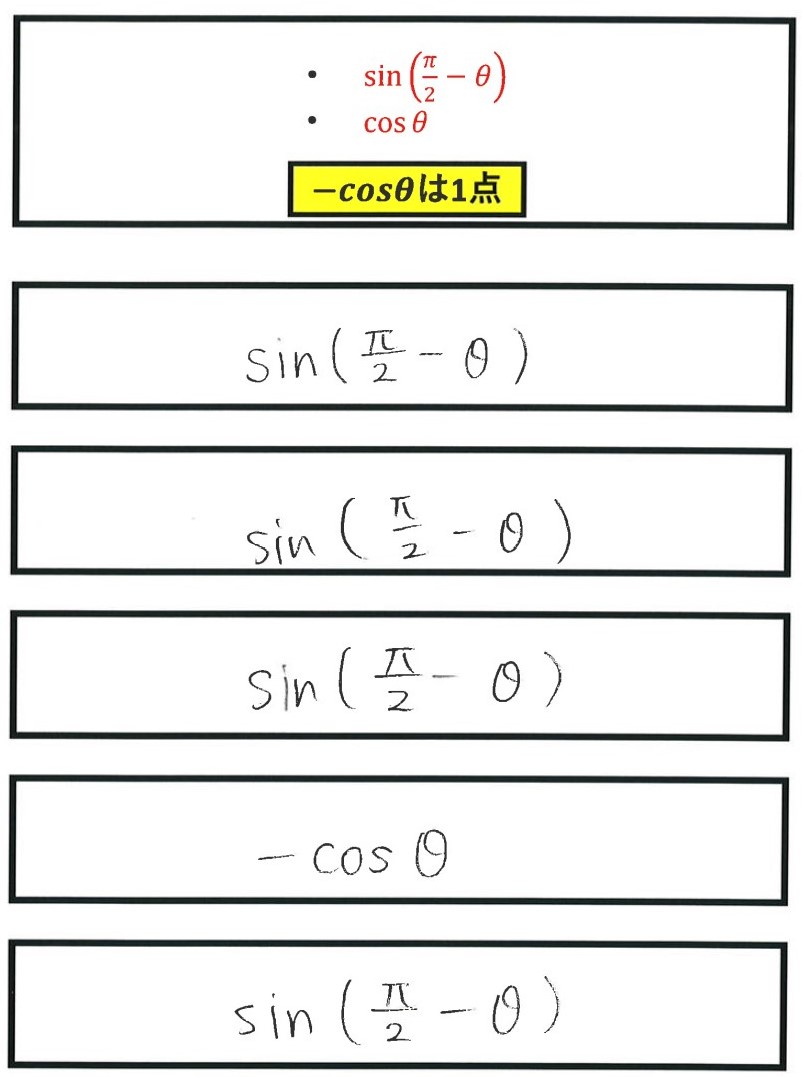 • sin(π/2 − θ)
• cos θ
−cosθは1点
sin(π/2 − θ)
sin(π/2 − θ)
sin(π/2 − θ)
− cos θ
sin(π/2 − θ)